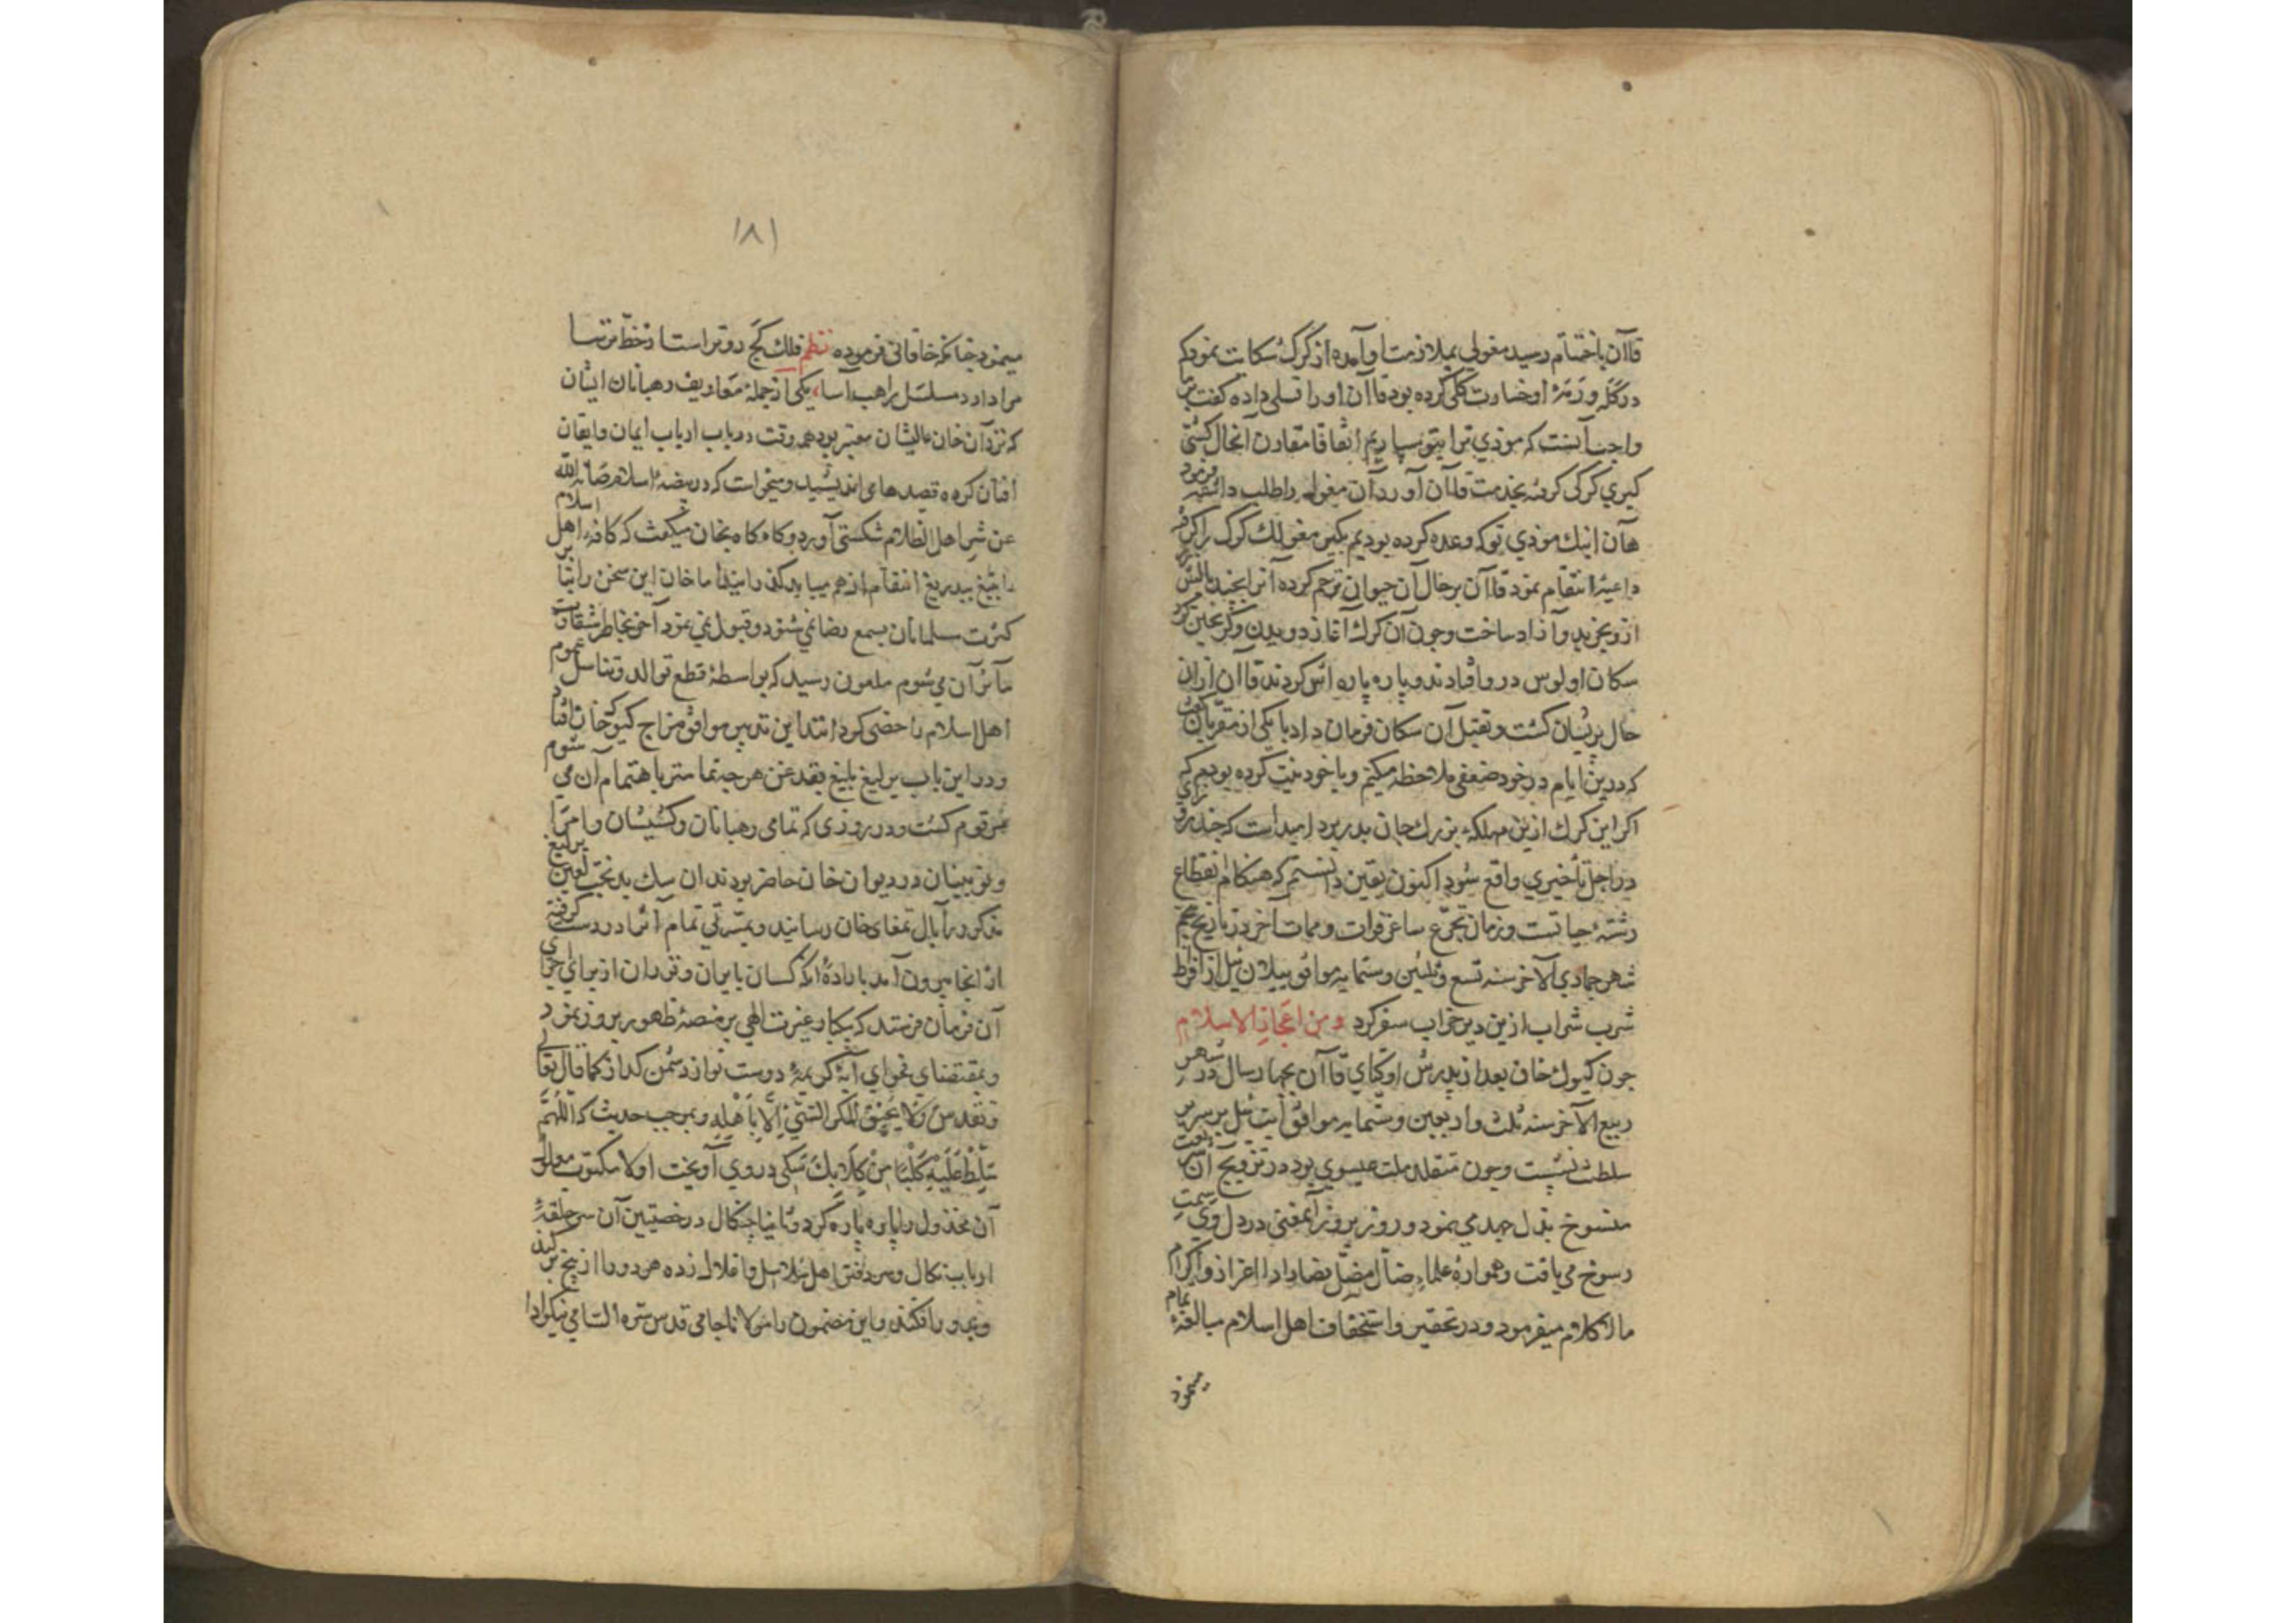 قاآن باختتام رسید مغولی بملازمت او آمده از گرگ شکایت نمود که
در گله و رمهٔ او خسارت کلی کرده بود قاآن او را تسلی داده گفت بر
واجب آنست که موذی ترا بتو سپاریم اتفاقا مقارن آنحال کشتی
کیری گرگی گرفته بخدمت قاآن آورد آن مغول را طلب داشته فرمود
هان اینک موذی تو که وعده کرده بودیم بگیر مغولک گرگ را گرفته
داعیهٔ انتقام نمود قاآن بر حال آن حیوان ترحم کرده آنرا بچند بالش
ازو بخرید و آزاد ساخت و چون آن گرگ آغاز دویدن و گریختن کرد
سکان اولوس در و افتادند و پاره پاره اش کردند قاآن ازان
حال پریشان گشت و بقتل آن سکان فرمان داد با یکی از مقربان گفت
که درین ایام در خود ضعفی ملاحظه میکنم و با خود نیت کرده بودم که
اکر این گرگ ازین مهلکه بزرک جان بدر برد امیداست که چند روزی
در اجل تأخیری واقع شود اکنون یقین دانستم که هنکام انقطاع
رشتهٔ حیاتست و زمان تجرّع ساغر فوات و ممات آخر در تاریخ پنجم
شهر جمادی الآخر سنه تسع و ثلثین و ستمایه موافق ییلان ئیل از افراط
شرب شراب ازین دیر خراب سفر کرد و من اعجاز الاسلام
چون کیوک خان بعد از پدرش اوکتای قاآن بچهار سال در شهر
ربیع الآخر سنه ثلث و اربعین و ستمایه موافق ایت ئیل بر سریر
سلطنت نشست و چون متقلد ملت عیسوی بود در ترویج آن شریعت
منسوخ بذل جهد می نمود و روز بروز آنمعنی در دل وی سمت
رسوخ می یافت و همواره علماء ضال مضلّ نصارا را اعزاز و اکرام
مالا کلام میفرمود و در تحقیر و استخفاف اهل اسلام مبالغهٔ تمام
مینمود
۱۸۱
مینمود چنانکه خاقانی فرموده نظم فلک کج رو تر است از خط ترسا
مرا دارد مسلسل راهب آسا، یکی از جملهٔ معاریف رهبانان ایشان
که نزد آن خان عالیشان معتبر بود همه وقت در باب ارباب ایمان و ایقان
افتان کرده قصدها می اندیشید و میخواست که در بیضهٔ اسلام صانه الله
عن شر اهل الظلام شکستی آورد و کاه کاه بخان میگفت که کافه اهل اسلام
را بتیغ بیدریغ انتقام از هم میباید گذرانید اما خان این سخن را بنابر
کثرت مسلمانان بسمع رضا نمی شنود و قبول نمی نمود آخر بخاطر شقاوت
مآثر آن میشوم ملعون رسید که بواسطهٔ قطع توالد و تناسل عموم
اهل اسلام را خصی کردانند این تدبیر موافق مزاج کیوک خان افتاد
و در این باب یرلیغ بلیغ بقدغن هر چه تمامتر باهتمام آن می شوم
مرقوم گشت و در روزی که تمامی رهبانان و کشیشان و امرا
و نوییبنان در دیوان خان حاضر بودند آن سک بدبخت لعین یرلیغ
مذکور را بآل تمغای خان رسانید و بمسرتی تمام آنرا در دست گرفته
از آنجا بیرون آمد بارادهٔ آنکه کسان بایران و توران از برای اجرای
آن فرمان فرستد که بیکبار غیرت الهی بر منصهٔ ظهور بروز نمود
و بمقتضای فحوای آیهٔ کریمهٔ دوست نواز دشمن گداز کما قال تعالی
و تقدس وَلَا یَحِیقُ المَکرُ السَّیِّئُ اِلَّا بِأَهْلِهِ و بموجب حدیث که اَللّهُمَّ
سَلِّطْ عَلَیْهِ کَلْبًا مِنْ کِلَابِکَ سگی در وی آویخت اولا مکتوب
آن مخذول را پاره پاره کرد و ثانیا چنگال در خصیتین آن سرحلقهٔ
ارباب نکال و سر دفتر اهل سلاسل و اغلال زده هر دو را از بیخ برکند
و بدور افکند و این مضمون را مولانا جامی قدس سره السامی نیکو ادا